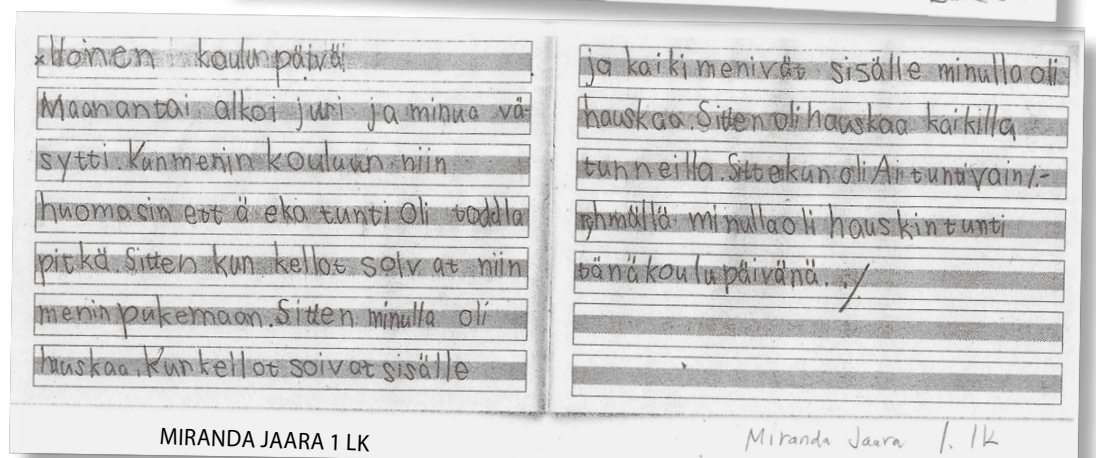 Iloinen koulunpäivä
Maanantai alkoi juri ja minua vä-
sytti. Kun menin kouluun niin
huomasin että eka tunti oli todella
pitkä. Sitten kun kellot soivat niin
menin pukemaan. Sitten minulla oli
hauskaa. Kun kellot soivat sisälle
ja kaiki menivät sisälle minulla oli
hauskaa. Sitten oli hauskaa kaikilla
tunneilla. Sitten kun oli Äi tunti vain 1.-
ryhmällä minulla oli hauskin tunti
tänä koulupäivänä.
MIRANDA JAARA 1 LK
Miranda Jaara 1. lk